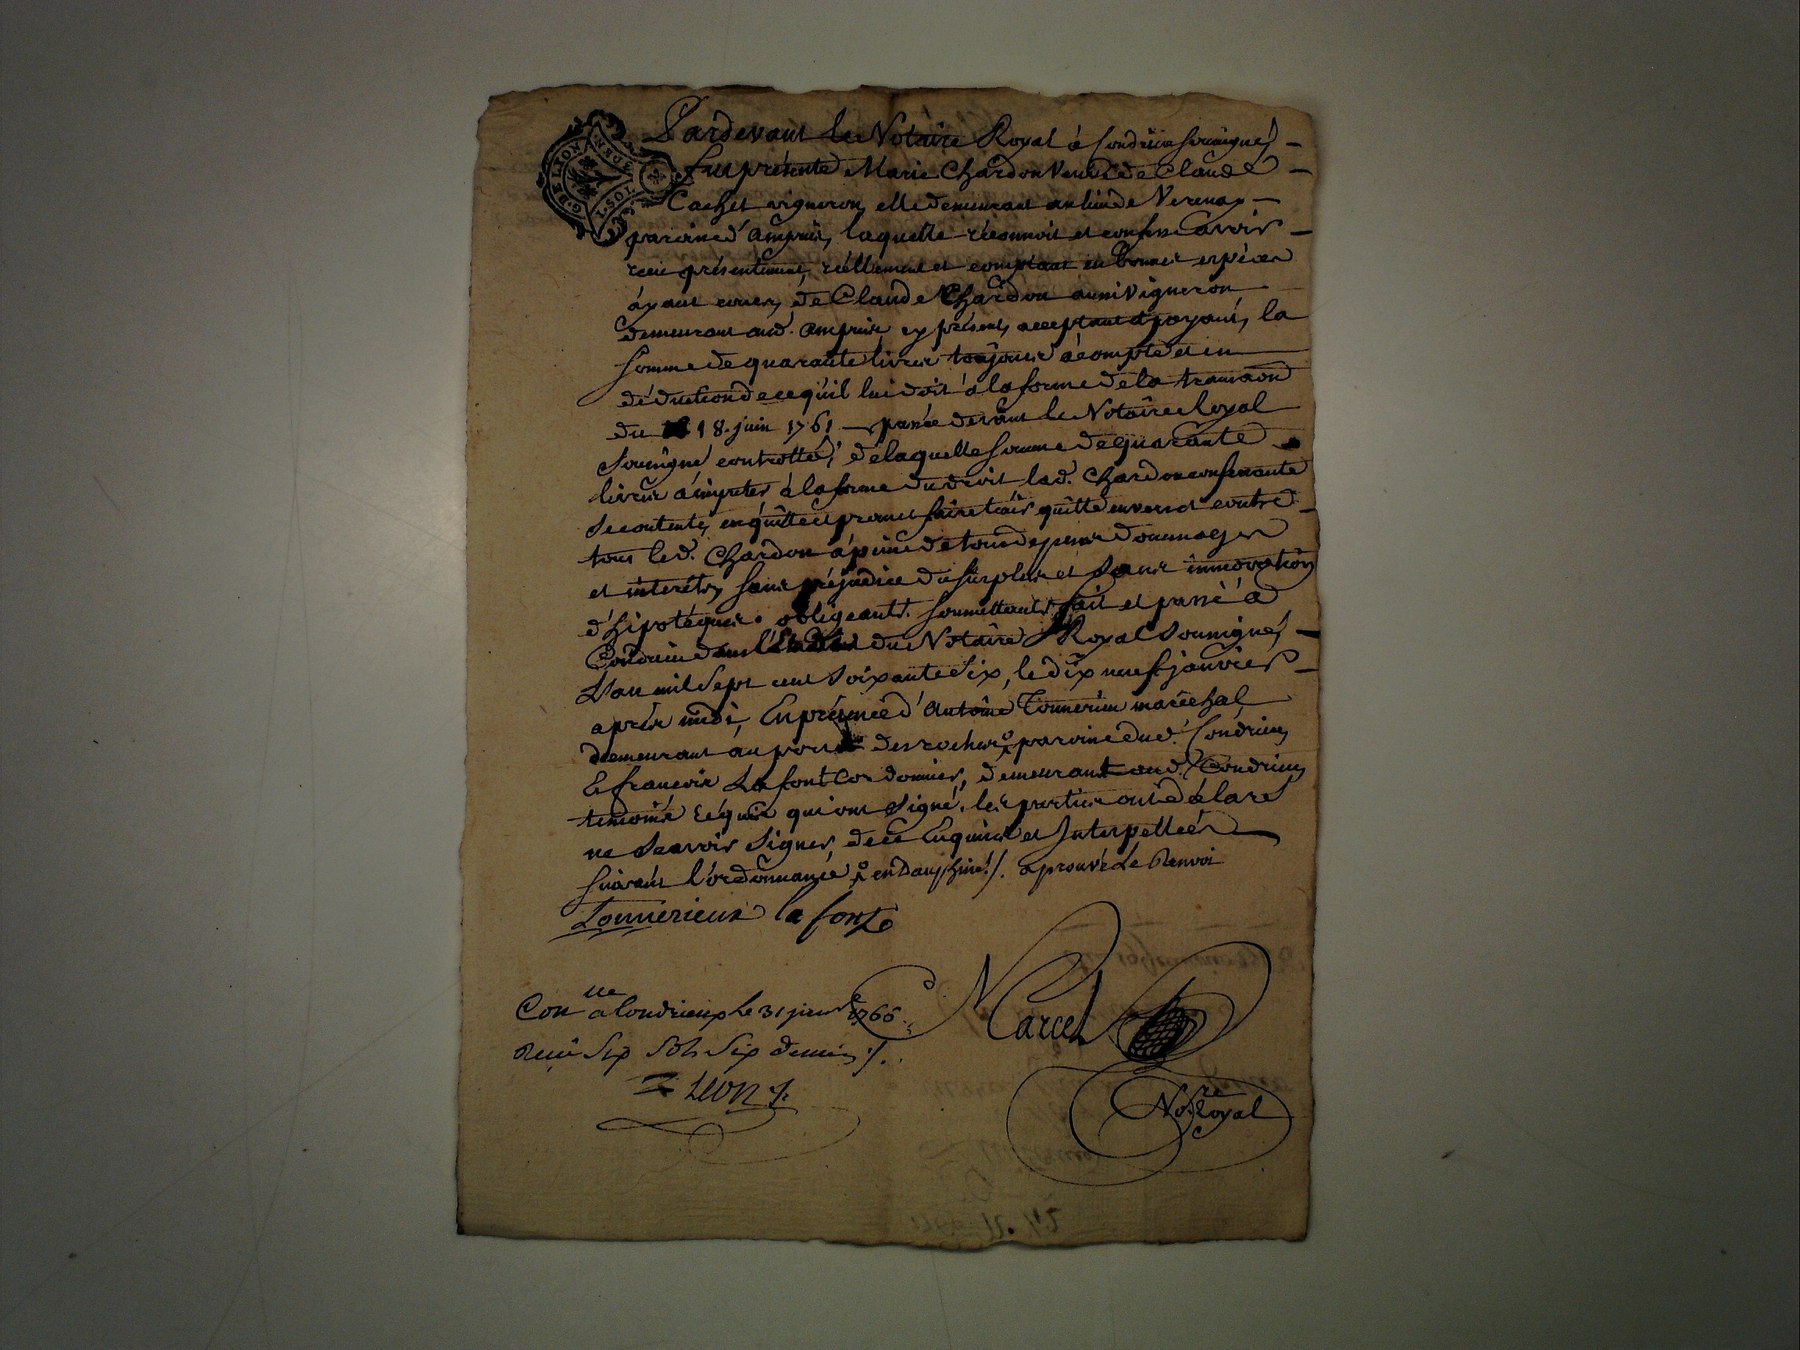 G. DE LYON
1. SOL 3 DEN
Pardevant le Notaire Royal à Condrieu soussigné
fut présente Marie Chardon Veuve de Claude
Cachet vigneron, elle demeurant au lieu de Verenay
paroisse d'ampuis, laquelle reconnoit et confesse avoir
receu présentement, réellement et comptant en bonnes espèces
áyant cours, de Claude Chardon aussi Vigneron
demeurant aud. ampuis cy présent, acceptant et payant, la
somme de quarante livres toûjours à compte et en
déduction de ce qu'il lui doit à la forme de la transaōn
du 18. juin 1761 passée devant le Notaire Royal
soussigné controllé, de laquelle somme de quarante
livres à imputer à la forme du droit lad. Chardon confessante
se contente, en quitte et promet faire tenir quitte envers et contre
tous led. Chardon à peine de tous depens dommages
et interéts, sans préjudice du surplus et sans innovation
d'hipotéques. obligeant. soumettant. fait et passé à
Condrieu dans l'Etude du Notaire Royal soussigné,
L'an mil sept cent soixante six, le dix neuf janvier
après midi, En présence d'Antoine Tonnerieu maréchal
demeurant au port des roches paroisse dud. Condrieu,
Et françois Lafont Cordonnier, demeurant aud. Condrieu
temoins requis qui ont signé, les parties ont déclaré
ne sçavoir signer, de ce Enquises et Interpellées
suivant l'ordonnance en Dauphiné ./. aprouvé Le Renvoi
Tonnerieux la font
Marcel
Con.lle a Condrieu Le 31 janv. 1766
Reçu Six Sols Six deniers ./.
Leon
No.re Royal